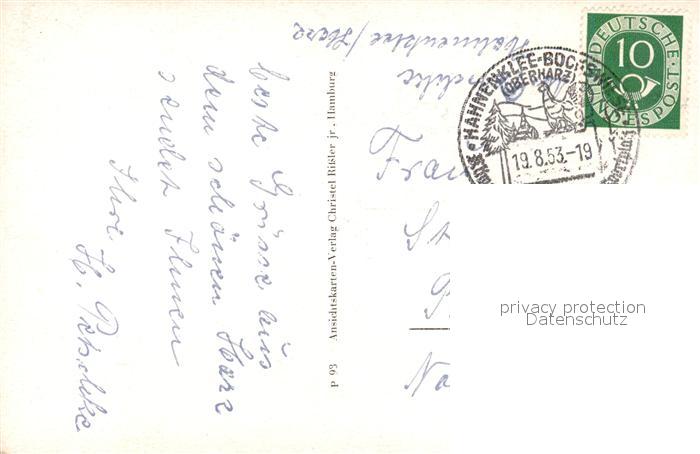 Beste Grüsse aus
dem schönen Harz
sendet Ihnen
Ihre
H.
P 93 Ansichtskarten-Verlag Christel Rißler jr., Hamburg
Hahnenklee/Harz
Frau
DEUTSCHE
BUNDESPOST
10
HAHNENKLEE-BOCKSWIESE
(OBERHARZ)
19.8.53.-19
privacy protection
Datenschutz